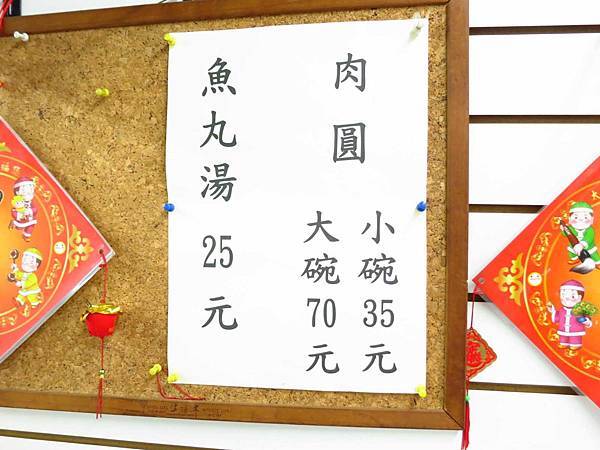 肉圓
小碗35元
大碗70元
魚丸湯 25 元